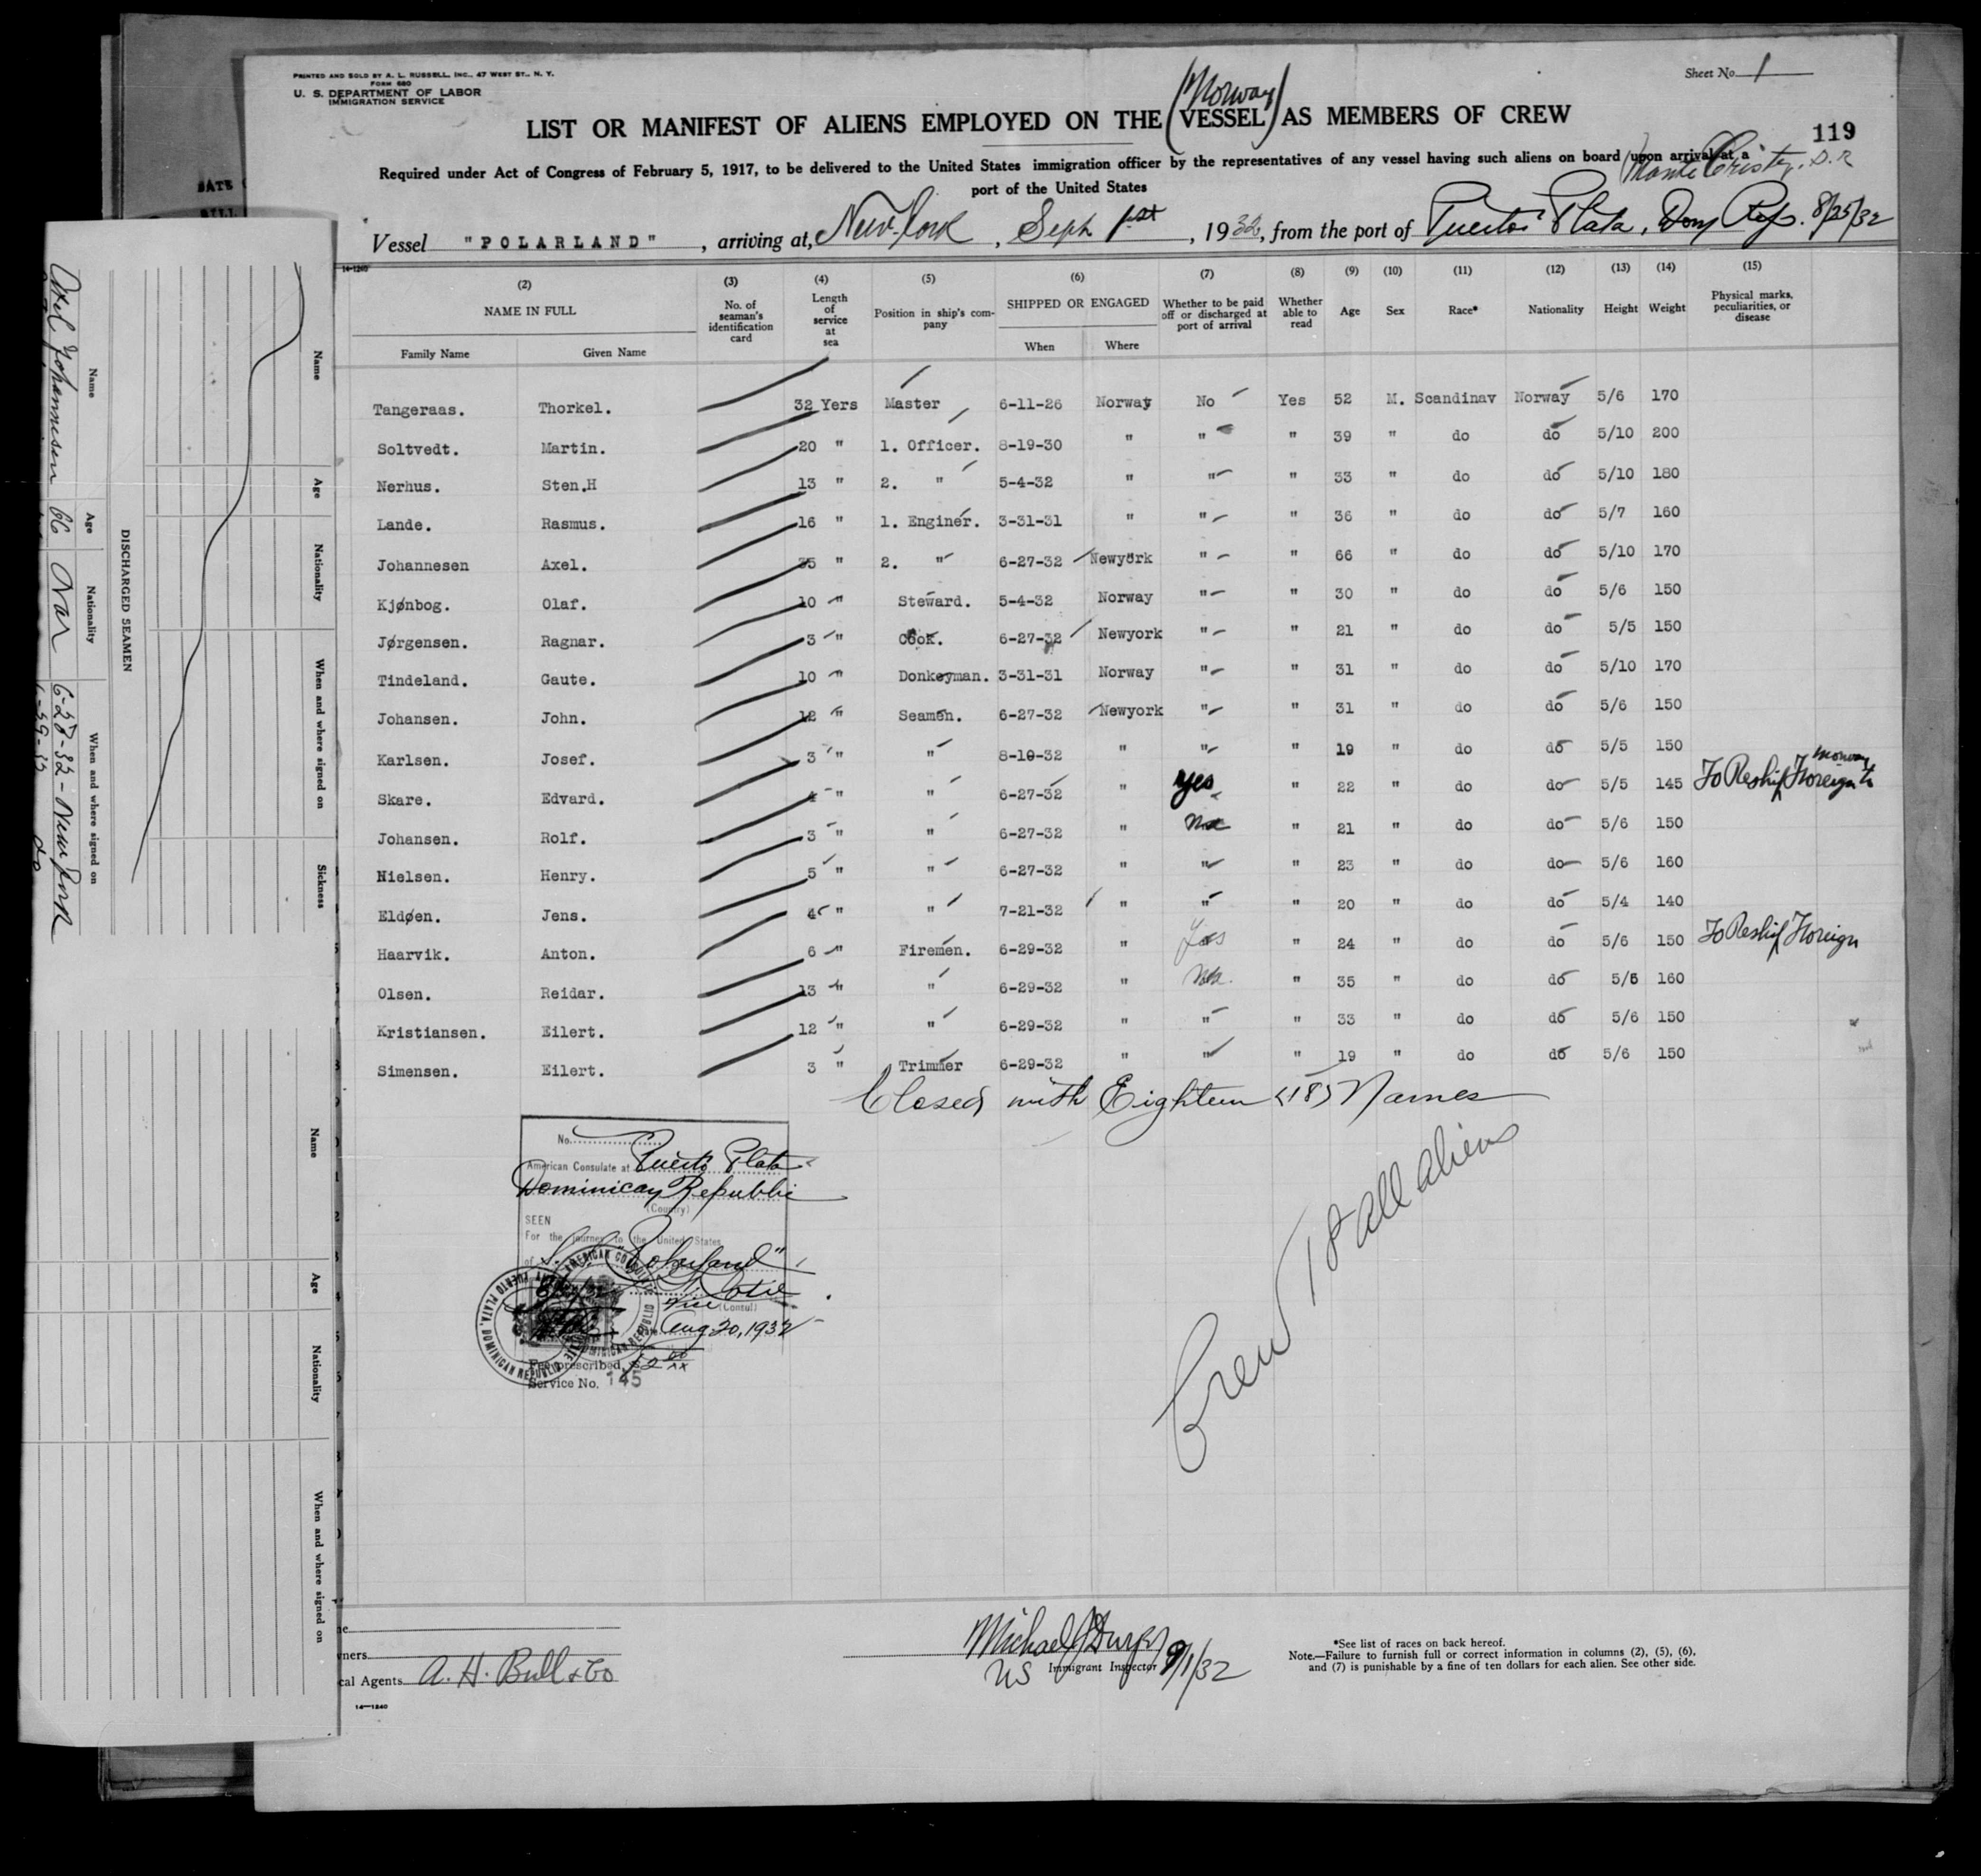 PRINTED AND SOLD BY A. L. RUSSELL, INC., 47 WEST ST., N. Y.
FORM 680
U. S. DEPARTMENT OF LABOR
IMMIGRATION SERVICE
Sheet No. 1
(Norway)
LIST OR MANIFEST OF ALIENS EMPLOYED ON THE VESSEL AS MEMBERS OF CREW
119
Required under Act of Congress of February 5, 1917, to be delivered to the United States immigration officer by the representatives of any vessel having such aliens on board upon arrival at a
port of the United States
Monte Cristy, D.R
Vessel "POLARLAND", arriving at, New York, Sept 1st, 1932, from the port of Puerto Plata, Dom Rep. 8/25/32
14-1240
(2) (3) (4) (5) (6) (7) (8) (9) (10) (11) (12) (13) (14) (15)
NAME IN FULL No. of seaman's identification card Length of service at sea Position in ship's company SHIPPED OR ENGAGED Whether to be paid off or discharged at port of arrival Whether able to read Age Sex Race* Nationality Height Weight Physical marks, peculiarities, or disease
Family Name Given Name When Where
Tangeraas. Thorkel. 32 Yers Master 6-11-26 Norway No Yes 52 M. Scandinav Norway 5/6 170
Soltvedt. Martin. 20 " 1. Officer. 8-19-30 " " " 39 " do do 5/10 200
Nerhus. Sten.H 13 " 2. " 5-4-32 " " " 33 " do do 5/10 180
Lande. Rasmus. 16 " 1. Enginer. 3-31-31 " " " 36 " do do 5/7 160
Johannesen Axel. 35 " 2. " 6-27-32 Newyork " " 66 " do do 5/10 170
Kjønbog. Olaf. 10 " Steward. 5-4-32 Norway " " 30 " do do 5/6 150
Jørgensen. Ragnar. 3 " Cook. 6-27-32 Newyork " " 21 " do do 5/5 150
Tindeland. Gaute. 10 " Donkeyman. 3-31-31 Norway " " 31 " do do 5/10 170
Johansen. John. 12 " Seamen. 6-27-32 Newyork " " 31 " do do 5/6 150
Karlsen. Josef. 3 " " 8-10-32 " " " 19 " do do 5/5 150
Skare. Edvard. 4 " " 6-27-32 " Yes " 22 " do do 5/5 145 To Reship Foreign to Norway
Johansen. Rolf. 3 " " 6-27-32 " No " 21 " do do 5/6 150
Nielsen. Henry. 5 " " 6-27-32 " " " 23 " do do 5/6 160
Eldøen. Jens. 4 " " 7-21-32 " " " 20 " do do 5/4 140
Haarvik. Anton. 6 " Firemen. 6-29-32 " Yes " 24 " do do 5/6 150 To Reship Foreign
Olsen. Reidar. 13 " " 6-29-32 " No. " 35 " do do 5/6 160
Kristiansen. Eilert. 12 " " 6-29-32 " " " 33 " do do 5/6 150
Simensen. Eilert. 3 " Trimmer 6-29-32 " " " 19 " do do 5/6 150
Closed with Eighteen <18> Names
Crew 18 all aliens
No.
American Consulate at Puerto Plata
Dominican Republic
(Country)
SEEN
For the journey to the United States
of S.S. "Polarland"
Vice (Consul)
Aug 20, 1932
Fee prescribed, $2.00
Service No. 145
AMERICAN CONSULATE
PUERTO PLATA, DOMINICAN REPUBLIC
Agents A. H. Bull & Co
14-1240
US Immigrant Inspector 9/1/32
Michael J
*See list of races on back hereof.
Note.—Failure to furnish full or correct information in columns (2), (5), (6),
and (7) is punishable by a fine of ten dollars for each alien. See other side.
DISCHARGED SEAMEN
Name Age Nationality When and where signed on
Axel Johannesen 66 Nor 6-28-32 - New York
Name Age Nationality When and where signed on Sickness
Name Age Nationality When and where signed on
DATE